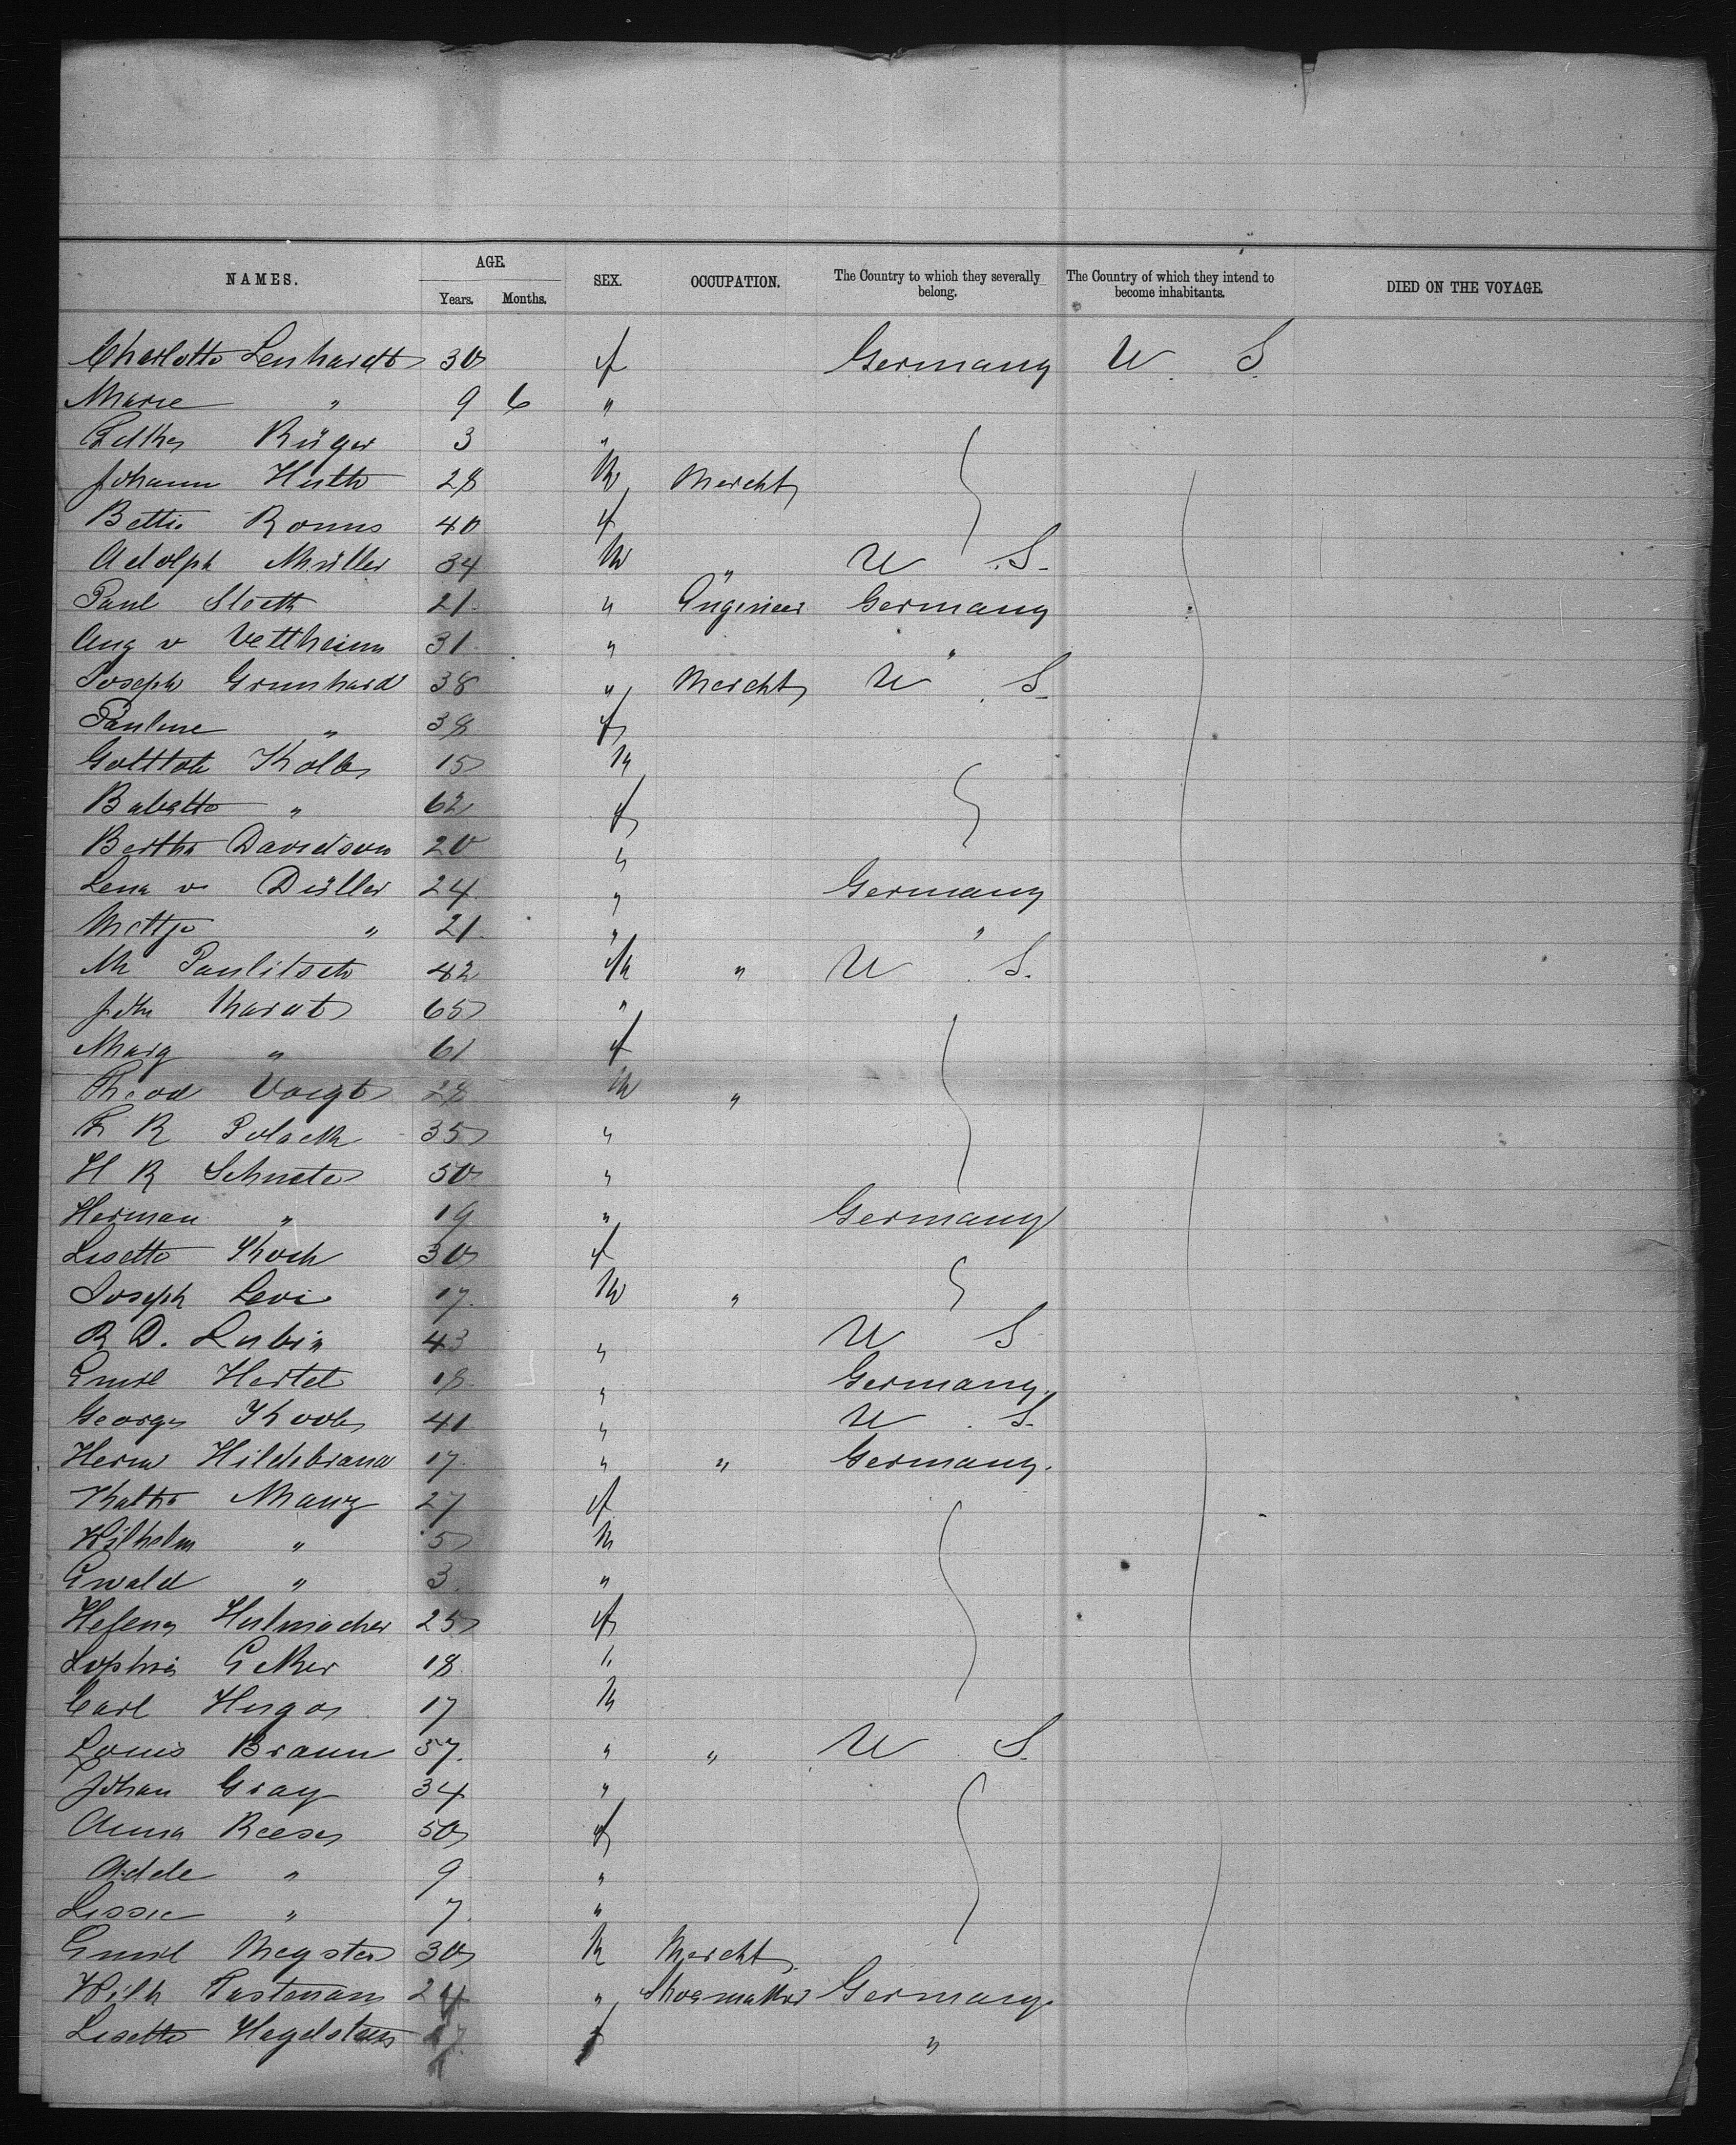 NAMES. AGE. Years. Months. SEX. OCCUPATION. The Country to which they severally belong. The Country of which they intend to become inhabitants. DIED ON THE VOYAGE.
Charlotte Lenhardt 30 f Germany U. S.
Marie " 9 6 "
Rüger 3 "
Johann Huth 28 M Mercht
Bettie 40 f
Adolph Müller 34 M " U S.
Paul 21 " Engineer Germany
Aug v Veltheim 31 " "
Joseph Grunhard 38 " Mercht U. S.
Pauline " 38 f
Kolb 15 M
Babette " 62 f
Bertha Davidson 20 "
Lena v Düller 24 " Germany
Mettje " 21 " "
M Paulitsch 42 M " U. S.
John 65 "
Marg " 61 f
Theod Voigt 28 M "
R Polack 35 "
H R 50 "
Herman " 19 " Germany
Lisette Koch 30 f
Joseph Levi 17 M "
R D. Lubin 43 " U S
Emil Hertel 18 " Germany.
George 41 " U. S.
Herm Hildebrand 17 " " Germany.
Manz 27 f
Wilhelm " 5 M
Ewald " 3 "
Helena 25 f
Sophia 18 "
Carl 17 M
Louis Braun 57. " " U. S.
Johan Gray 34 "
Anna Reese 50 f
Adele " 9 "
Lissie " 7 "
Emil Megster 30 M Mercht
Wilh 24 " Shoemaker Germany.
Lisette 17 f "